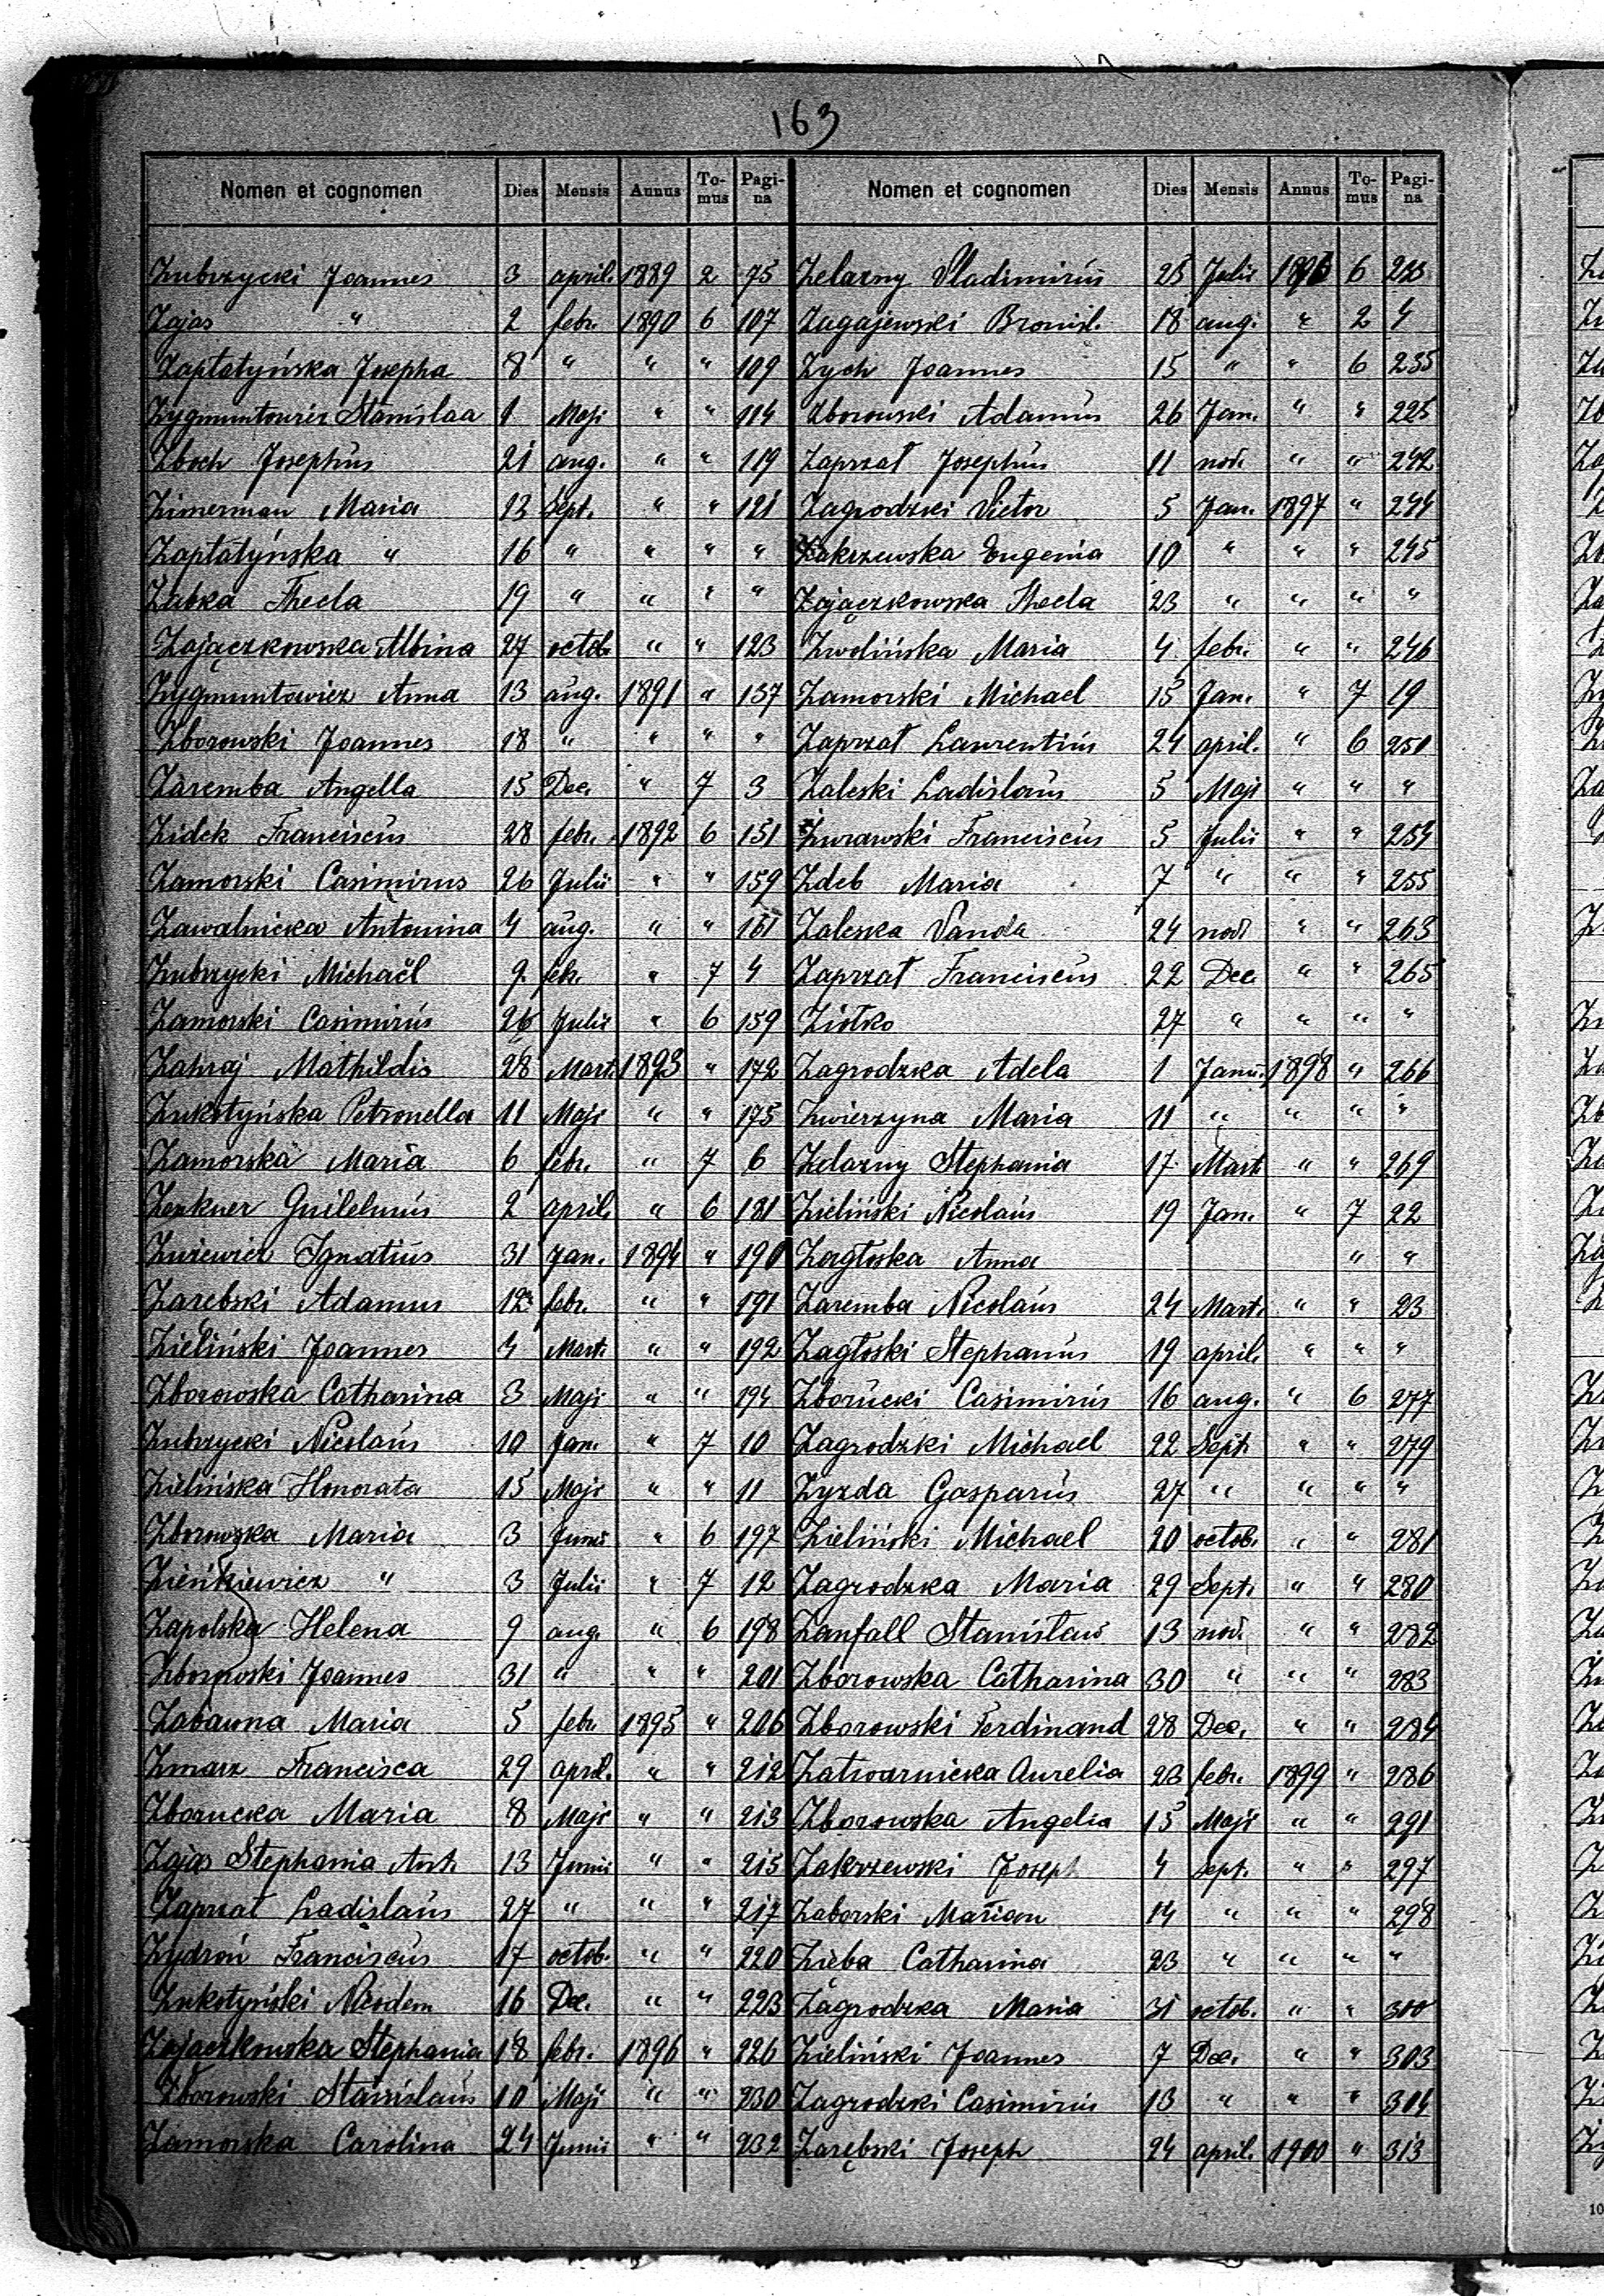 163
Nomen et cognomen Dies Mensis Annus To-mus Pagi-na Nomen et cognomen Dies Mensis Annus To-mus Pagi-na
Zubrzycki Joannes 3 april. 1889 2 75
Zajas " 2 febr. 1890 6 107
Zaptatyńska Josepha 8 " " " 109
Zygmuntowicz Stanislaa 1 Maji " " 114
Zboch Josephus 21 aug. " " 119
Zimerman Maria 13 Sept. " " 121
Zaptatyńska " 16 " " " "
Żabka Thecla 19 " " " "
Zajączkowska Albina 27 octob. " " 123
Zygmuntowicz Anna 13 aug. 1891 " 137
Zborowski Joannes 18 " " " "
Zaremba Angella 15 Dec. " 7 3
Zidek Franciscus 28 febr. 1892 6 151
Zamorski Casimirus 26 Julii " " 159
Zawalnicka Antonina 4 aug. " " 161
Zubrzycki Michaël 9 febr. " 7 4
Zamorski Casimirus 26 Julii " 6 159
Zahraj Mathildis 28 Mart. 1893 " 172
Zukotyńska Petronella 11 Maji " " 175
Zamorska Maria 6 febr. " 7 6
Zenkner Guilelmus 2 april. " 6 181
Zuiewicz Ignatius 31 Jan. 1894 " 190
Zarębski Adamus 12 febr. " " 191
Zieliński Joannes 4 Mart. " " 192
Zborowska Catharina 3 Maji " " 194
Zubrzycki Nicolaus 10 Jan. " 7 10
Zielińska Honorata 15 Maji " " 11
Zborowska Maria 3 Junii " 6 197
Zieńkiewicz " 3 Julii " 7 12
Zapolska Helena 9 aug. " 6 198
Zborowski Joannes 31 " " " 201
Zabawna Maria 5 febr. 1895 " 206
Zmarz Francisca 29 april. " " 212
Zborucka Maria 8 Maji " " 213
Zajas Stephania Ant. 13 Junii " " 215
Zaprzat Ladislaus 27 " " " 217
Zydroń Franciscus 17 octob. " " 220
Zukotyński Nicodem 16 Dec. " " 223
Zajaczkowska Stephania 18 febr. 1896 " 226
Zborowski Stanislaus 10 Maji " " 230
Zamorska Carolina 24 Junii " " 232
Zelazny Vladimirus 25 Julii 1896 6
Zagajewski Bronisl. 18 aug. " 2 4
Zych Joannes 15 " " 6 235
Zborowski Adamus 26 Jan. " " 225
Zaprzat Josephus 11 nov. " " 242
Zagrodzki Victor 5 Jan. 1897 " 244
Zakrzewska Eugenia 10 " " " 245
Zajączkowska Thecla 23 " " " "
Zwolińska Maria 4 febr. " " 246
Zamorski Michael 15 Jan. " 7 19
Zaprzat Laurentius 24 april. " 6 250
Zaleski Ladislaus 5 Maji " " "
Żurawski Franciscus 5 Julii " " 254
Zdeb Maria 7 " " " 255
Zaleska Vanda 24 nov. " " 263
Zaprzat Franciscus 22 Dec. " " 265
Ziółko 27 " " " "
Zagrodzka Adela 1 Janu. 1898 " 266
Zwierzyna Maria 11 " " " "
Zelazny Stephania 17 Mart. " " 269
Zieliński Nicolaus 19 Jan. " 7 22
Zagłoska Anna " "
Zaremba Nicolaus 24 Mart. " " 23
Zagłoski Stephanus 19 april. " " "
Zborucki Casimirus 16 aug. " 6 277
Zagrodzki Michael 22 Sept. " " 279
Zyzda Gasparus 27 " " " "
Zieliński Michael 20 octob. " " 281
Zagrodzka Maria 29 Sept. " " 280
Zanfall Stanislaus 13 nov. " " 282
Zborowska Catharina 30 " " " 283
Zborowski Ferdinand 28 Dec. " " 284
Zatwarnicka Aurelia 23 febr. 1899 " 286
Zborowska Angelia 15 Maji " " 291
Zakrzewski Joseph 4 sept. " " 297
Zaborski Marian 14 " " " 298
Zięba Catharina 23 " " " "
Zagrodzka Maria 31 octob. " " 300
Zieliński Joannes 7 Dec. " " 303
Zagrodzki Casimirus 13 " " " 304
Zarębski Joseph 24 april. 1900 " 313
10